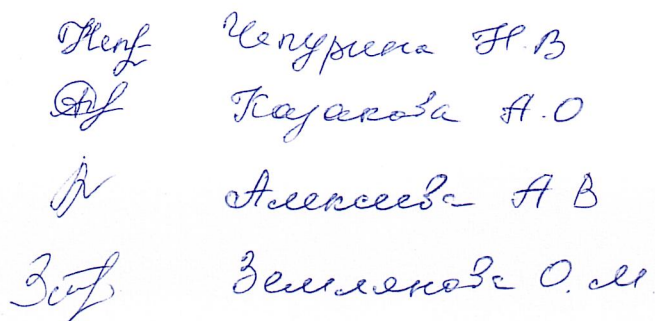 Чепурина Н.В
Казакова А.О
Алексеева А В
Землянова О.М.